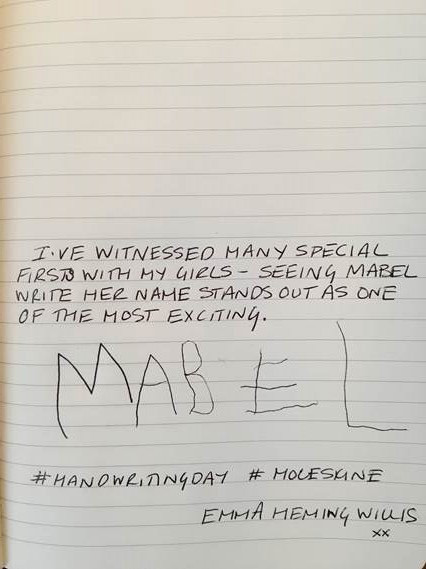 I'VE WITNESSED MANY SPECIAL
FIRSTS WITH MY GIRLS - SEEING MABEL
WRITE HER NAME STANDS OUT AS ONE
OF THE MOST EXCITING.
MABEL
#HANDWRITINGDAY # MOLESKINE
EMMA HEMING WILLIS
xx